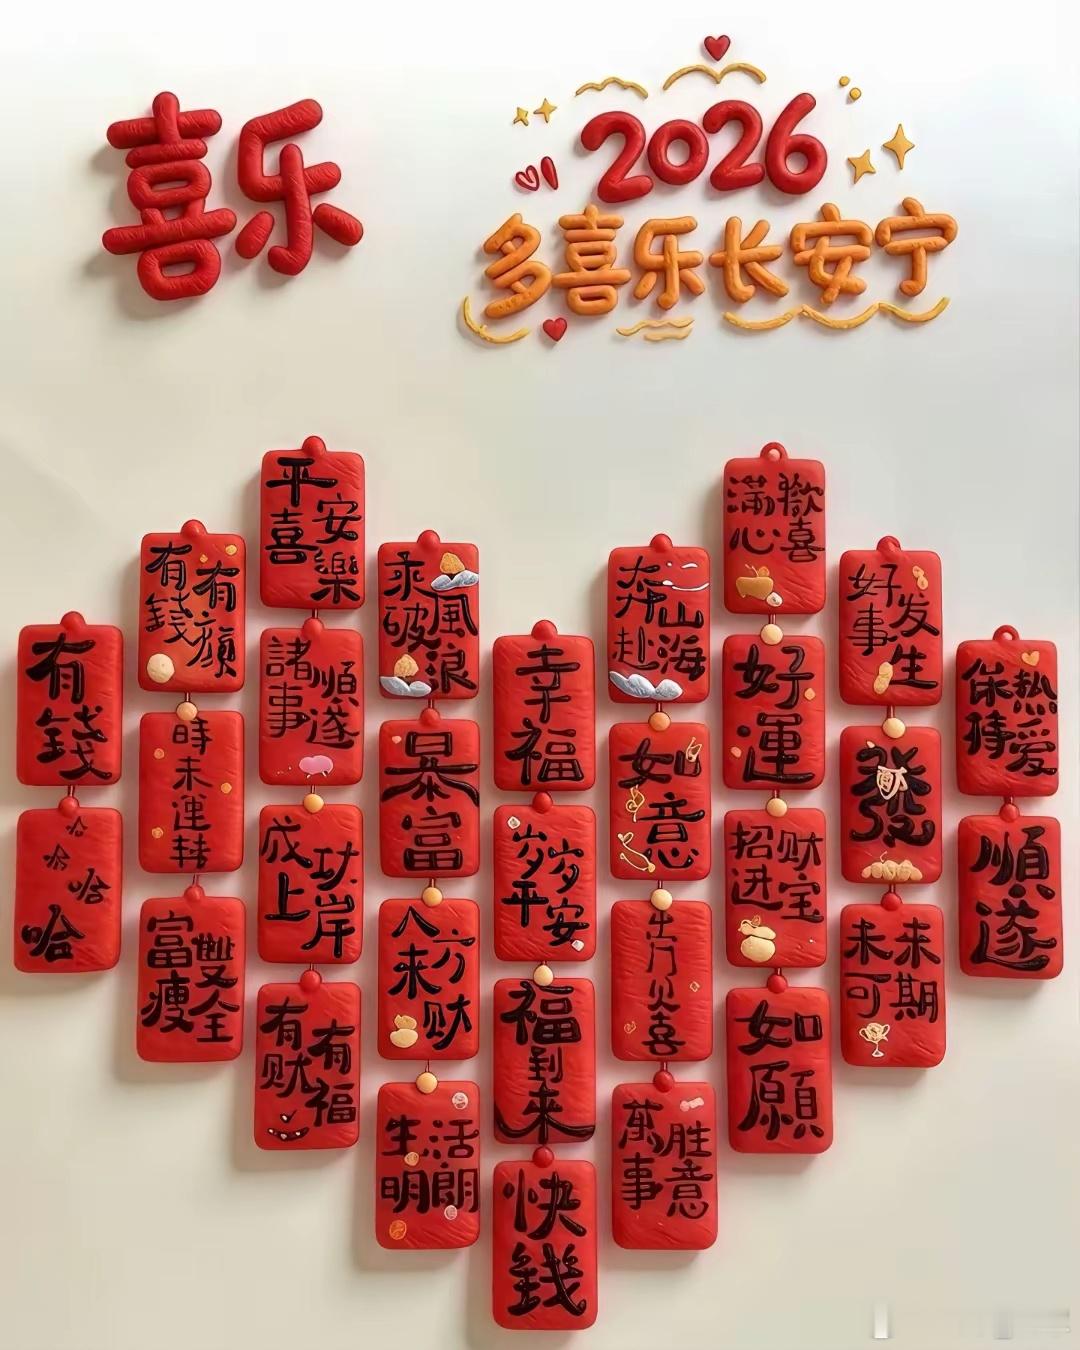 喜乐
2026
多喜乐长安宁
有錢
哈哈哈哈
有錢有顏
時未運转
富瘦雙全
平安喜樂
諸事順遂
成功上岸
有财有福
乘風破浪
暴富
八方来财
生活明朗
幸福
岁岁平安
福到来
快錢
奔赴山海
如意
萬事胜意
满心歡喜
好運
招财进宝
如願
好事发生
發
未来可期
保持热爱
順遂